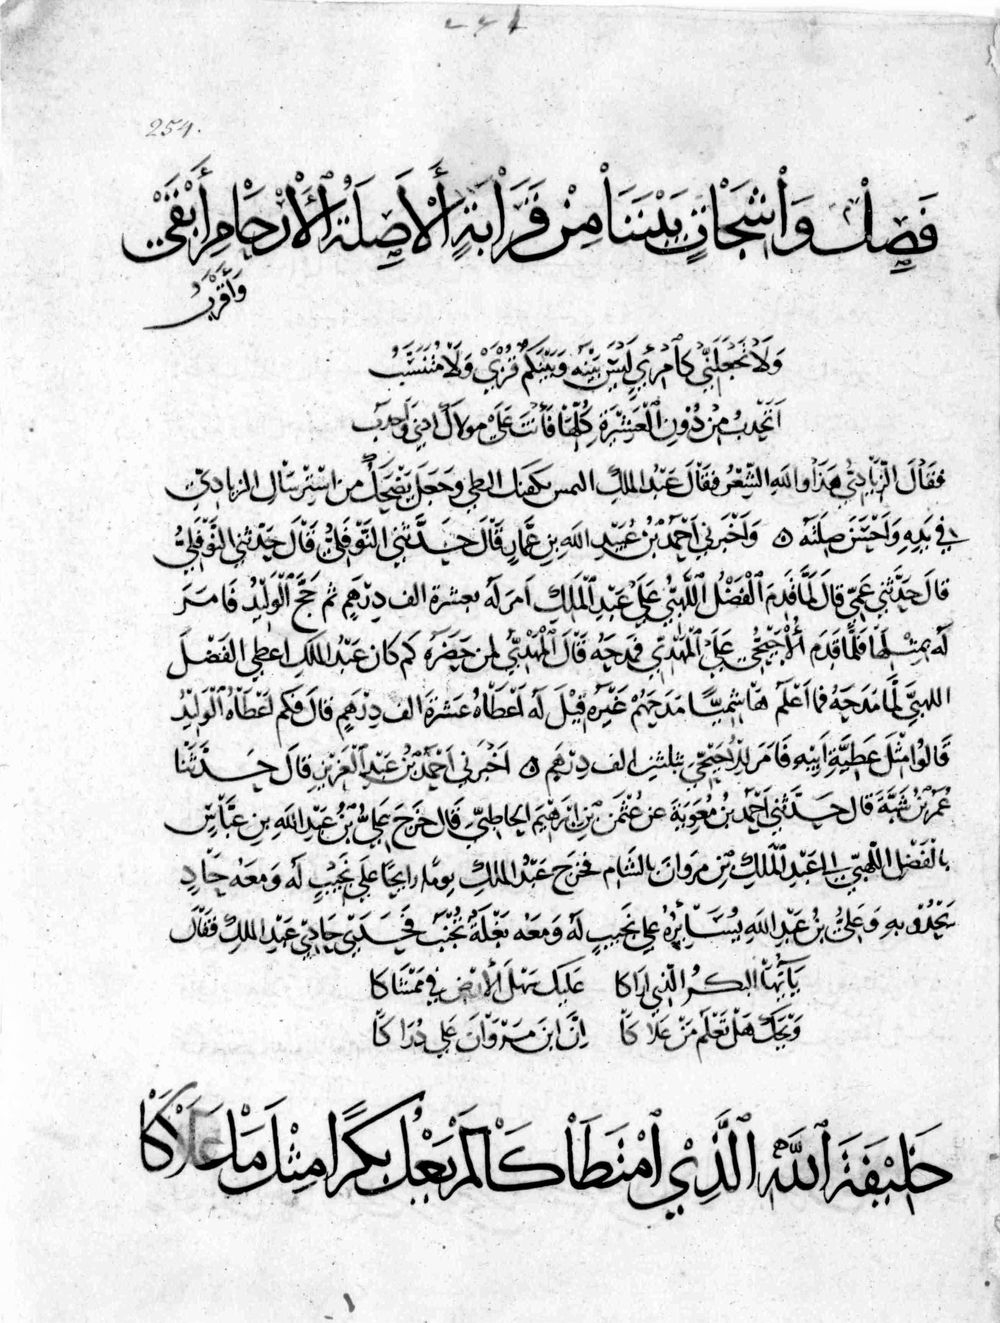 254.
فَصِلْ وَاشِجَاتٍ بَيْنَنَا مِنْ قَرَابَةٍ أَلَا صِلَةُ الْأَرْحَامِ أَبْقَى
وَأَقْرَبُ
وَلَا تَجْعَلَنِّي كَامْرِئٍ لَيْسَ بَيْنَهُ وَبَيْنَكُمُ قُرْبَى وَلَا مُتَنَسَّبُ
أَتَحْدِبُ مِنْ دُونِ الْعَشِيرَةِ كُلِّهَا فَأَنْتَ عَلَى مولاك ادنى وأحدب
فَقَالَ الزِّيَادِيُّ هَذَا وَاللهِ الشِّعْرُ فَقَالَ عَبْدُ الملكِ النمس يكفيك البطي وَجَعَلَ يَضْحَكُ من اسْتِرْسَالِ الزيادِيّ
في يَدِهِ وَاحْسَنَ صِلَتَهُ ه وَاخْبَرَني أَحْمَدُ بْنُ عُبَيْدِ اللهِ بنِ عَمَّارٍ قَالَ حَدَّثَنِي النَّوْفَلِيُّ قَالَ حَدَّثَنِي النَّوْفَلِيُّ
قالَ حَدَّثَنِي عَمِّي قالَ لَمَّا قَدِمَ الْفَضْلُ اللَّهَبِيُّ عَلَى عَبْدِ الْمَلِكِ امرَ لَهُ بعشرة الف دِرْهَمٍ ثم حَجَّ الْوَلِيدُ فَامَرَ
لَهُ بِمِثْلِهَا فَلَمَّا قَدِمَ الْأُحَيْحِيُّ عَلَى الْمَهْدِيِّ فَمَدَحَهُ قَالَ الْمَهْدِيُّ لمن حَضَرَهُ كم كان عَبْدُ الملكِ اعطى الفَضْلَ
اللهبِيَّ لَمَّا مَدَحَهُ فما أَعْلَمُ هَاشِمِيًّا مَدَحَهُمْ غَيْرَهُ قِيْلَ لَهُ أَعْطَاهُ عَشَرَةَ الف دِرْهَمٍ قالَ فَكم أَعْطَاهُ الْوَلِيْدُ
قَالُوا مِثْلَ عَطِيَّةِ أَبِيْهِ فَامَر لِلْأُحَيْحِيّ بثلثين الف دِرْهَمٍ ه اخْبَرَني أَحْمَدُ بْنُ عَبْدِ الْعَزِيزِ قالَ حَدَّثَنَا
عُمَرُ بْنُ شَبَّةَ قالَ حَدَّثَنِي أَحْمَدُ بنُ مُعَوِيَةَ عن عُثْمٰنَ بْنِ ابْرَهِيمَ الحَاطِبيّ قَالَ خَرَجَ عَلِيُّ بْنُ عَبْدِ اللهِ بنِ عَبَّاسٍ
بالْفَضْلِ اللَّهبِيّ الى عَبْدِ الْمَلِكِ بْنِ مروَانَ بالشَّامِ فخرَج عَبْدُ الملكِ يومًا رايحًا عَلَى نَجِيْبٍ لَهُ وَمَعَهُ حَادٍ
يَحْدُو بِهِ وَعَلِيُّ بنُ عَبْدِ اللهِ يُسَايِرُهُ عَلَى نَجِيبٍ لَهُ وَمَعَهُ بَغْلَةٌ تُجْنَبُ فَحَدَى حَادِي عَبْدِ الملكِ فَقَالَ
يَأَيُّهَا الْبكرُ الَّذي ارَاكَا عَلَيْكَ سَهْلَ الْأَرْضِ في مَمْشَاكا
وَيْحَكَ هَلْ تَعْلَمُ مَنْ عَلَاكَا اِنَّ ابْنَ مَرْوَانَ عَلَى ذُرَاكَا
خَلِيفَةَ اللهِ الَّذِي امْتَطَاكَا لَمْ يَعْلُ بَكْرًا مِثْلُ مَا عَلَاكَا